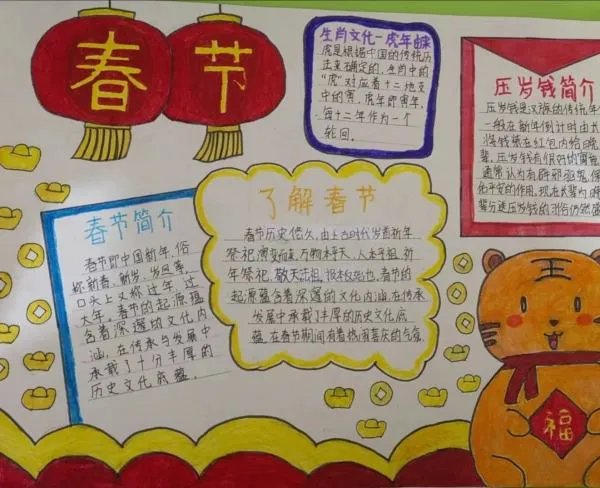 春节
生肖文化-虎年由来
虎是根据中国的传统历
法来确定的，生肖中的
“虎”对应着十二地支
中的寅，虎年即寅年，
每十二年作为一个
轮回。
压岁钱简介
压岁钱是汉族的传统年
一般在新年倒计时由长
将钱装在红包内给晚
辈，压岁钱有很好的寓意
通常认为有辟邪驱鬼，保
佑平安的作用，现在长辈为晚
辈分送压岁钱的习俗仍然盛
春节简介
春节即中国新年，俗
称新春、新岁、岁旦等，
口头上又称过年、过
大年，春节的起源蕴
含着深邃的文化内
涵，在传承与发展中
承载了十分丰厚的
历史文化底蕴。
了解春节
春节历史悠久，由上古时代岁首祈年
祭祀演变而来，万物本乎天，人本乎祖，祈
年祭祀、敬天法祖，报本反始也，春节的
起源蕴含着深邃的文化内涵，在传承
发展中承载了丰厚的历史文化底
蕴，在春节期间有着热闹喜庆的气氛
王
福